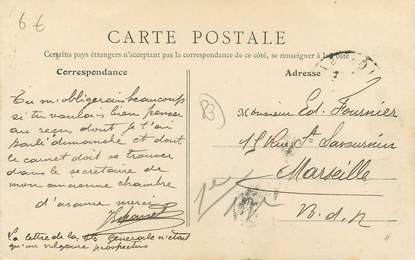 6 €
CARTE POSTALE
Certains pays étrangers n'acceptant pas la correspondance de ce côté, se renseigner à la Poste
Correspondance
Adresse
Tu m'obligerais beaucoup
si tu voulais bien penser
au reçu dont je t'ai
parlé dimanche et dont
le carnet doit se trouver
dans le secrétaire de
mon ancienne chambre
d'avance merci
La lettre de la Sté Générale n'était
qu'un vulgaire prospectus
Monsieur Ed. Fournier
15 Rue St Savournin
Marseille
B. d. R